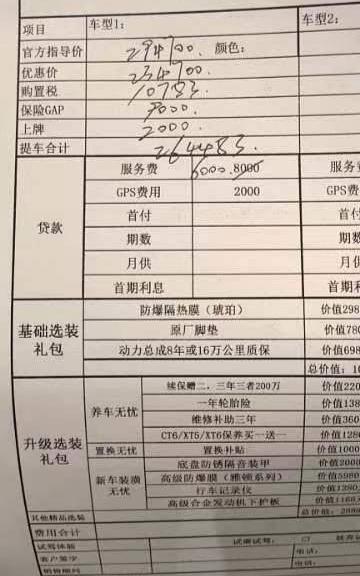 项目 车型1: 车型2:
官方指导价 294700. 颜色:
优惠价 234700.
购置税 10783.
保险GAP 9000.
上牌 2000.
提车合计 264483.
贷款 服务费 6000.8000 服务
GPS费用 2000 GPS费
首付 首付
期数 期数
月供 月供
首期利息 首期利
基础选装礼包 防爆隔热膜（琥珀） 价值298
原厂脚垫 价值780
动力总成8年或16万公里质保 价值698
总价值: 10
升级选装礼包 养车无忧 续保赠二、三年三者200万 价值220
一年轮胎险 价值138
维修补助三年 价值360
CT6/XT5/XT6保养买一送一 价值1280
置换无忧 置换补贴 价值1000
新车装潢无忧 底盘防锈隔音装甲 价值2000
高级防爆膜（雅顿系列） 价值5980
行车记录仪 价值1380
高级铝合金发动机下护板 价值1160
其他精品选装 总价值:
费用合计
试驾体验 试乘试驾:
客户签字 电话:
销售顾问 电话: